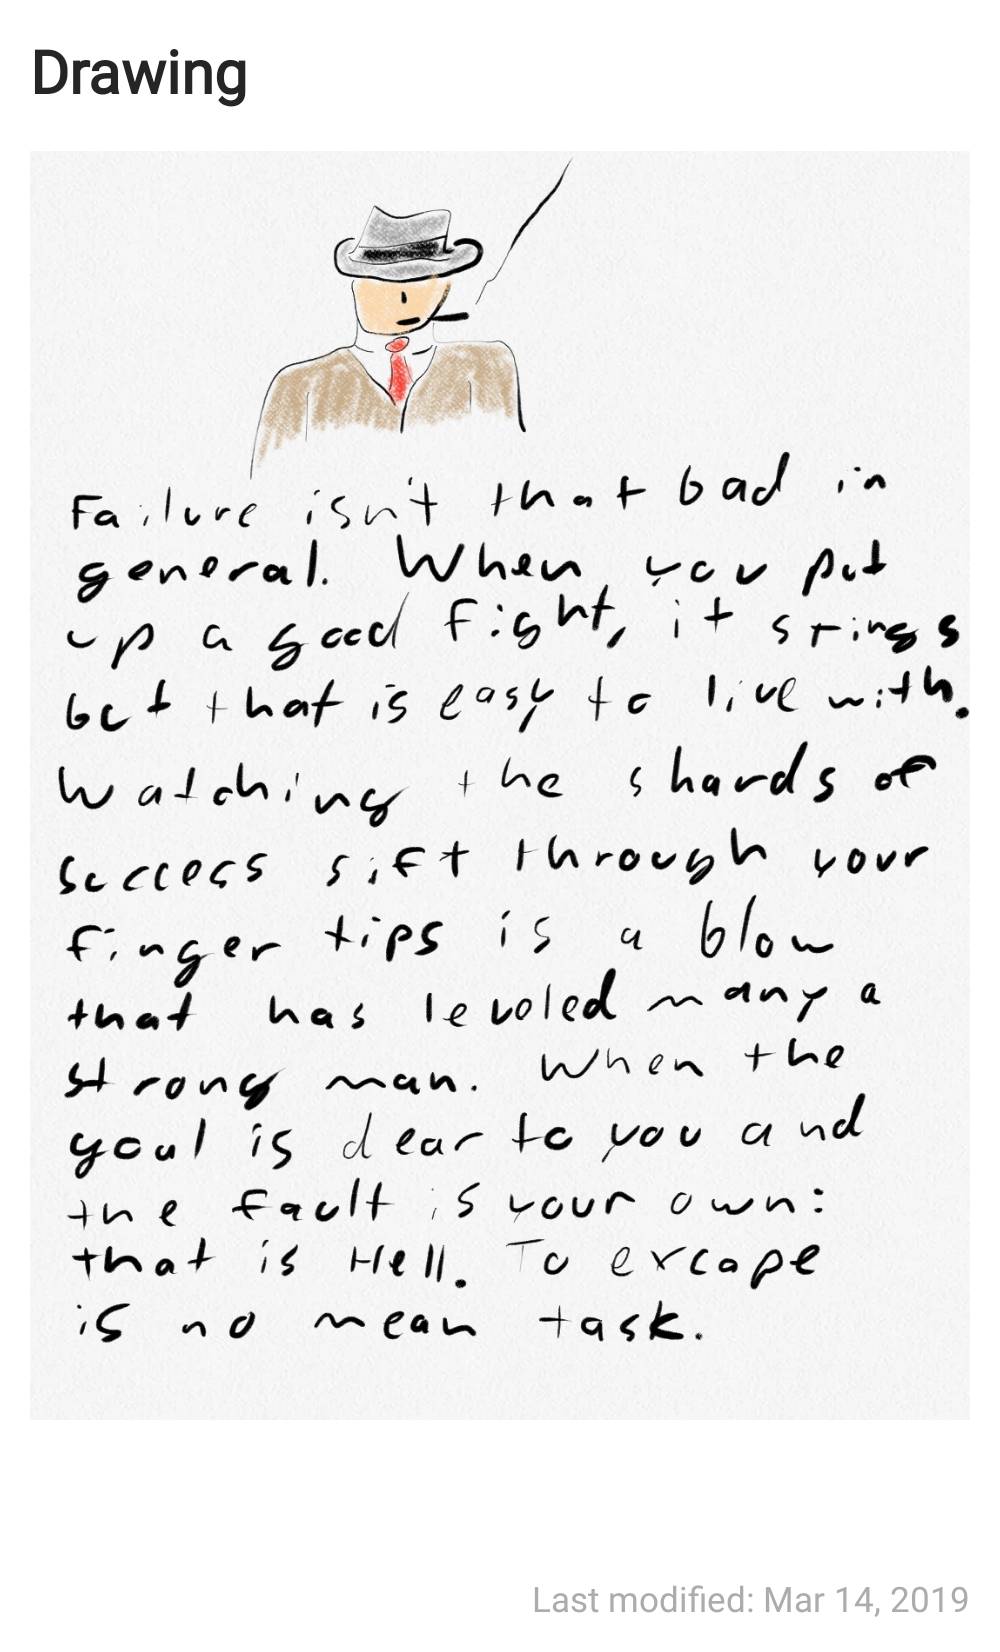 Drawing
Failure isn't that bad in
general. When you put
up a good fight, it stings
but that is easy to live with.
Watching the shards of
success sift through your
finger tips is a blow
that has leveled many a
strong man. When the
goal is dear to you and
the fault is your own:
that is Hell. To excape
is no mean task.
Last modified: Mar 14, 2019